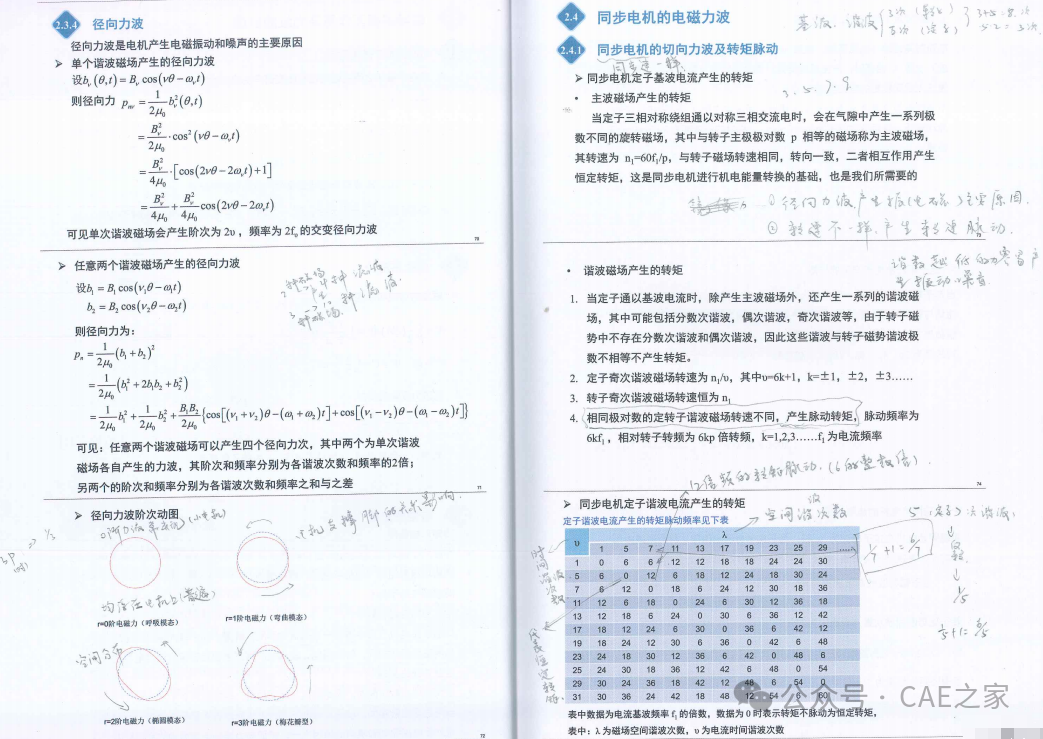 2.3.4 径向力波
径向力波是电机产生电磁振动和噪声的主要原因
➢ 单个谐波磁场产生的径向力波
设bᵥ(θ,t)=Bᵥ cos(νθ−ωᵥt)
则径向力 pₙᵣ = 1/2μ₀ bᵥ²(θ,t)
= Bᵥ²/2μ₀ · cos²(νθ−ωᵥt)
= Bᵥ²/4μ₀ · [cos(2νθ−2ωᵥt)+1]
= Bᵥ²/4μ₀ + Bᵥ²/4μ₀ cos(2νθ−2ωᵥt)
可见单次谐波磁场会产生阶次为 2υ ，频率为 2f₀ 的交变径向力波
70
➢ 任意两个谐波磁场产生的径向力波
设b₁ = B₁ cos(ν₁θ−ω₁t)
b₂ = B₂ cos(ν₂θ−ω₂t)
则径向力为：
pₙ = 1/2μ₀ (b₁+b₂)²
= 1/2μ₀ (b₁²+2b₁b₂+b₂²)
= 1/2μ₀ b₁² + 1/2μ₀ b₂² + B₁B₂/2μ₀ {cos[(ν₁+ν₂)θ−(ω₁+ω₂)t]+cos[(ν₁−ν₂)θ−(ω₁−ω₂)t]}
可见：任意两个谐波磁场可以产生四个径向力次，其中两个为单次谐波
磁场各自产生的力波，其阶次和频率分别为各谐波次数和频率的2倍；
另两个的阶次和频率分别为各谐波次数和频率之和与之差
71
➢ 径向力波阶次动图
r=0阶电磁力（呼吸模态）
r=1阶电磁力（弯曲模态）
空间分布
r=2阶电磁力（椭圆模态）
r=3阶电磁力（梅花瓣型）
72
2.4 同步电机的电磁力波
基波、谐波
2.4.1 同步电机的切向力波及转矩脉动
➢ 同步电机定子基波电流产生的转矩
3. 5. 7. 9.
• 主波磁场产生的转矩
当定子三相对称绕组通以对称三相交流电时，会在气隙中产生一系列极
数不同的旋转磁场，其中与转子主极极对数 p 相等的磁场称为主波磁场，
其转速为 n₁=60f₁/p，与转子磁场转速相同，转向一致，二者相互作用产生
恒定转矩，这是同步电机进行机电能量转换的基础，也是我们所需要的
① 径向力波产生振(电磁)主要原因.
② 转速不一样产生转速脉动.
• 谐波磁场产生的转矩
1. 当定子通以基波电流时，除产生主波磁场外，还产生一系列的谐波磁
场，其中可能包括分数次谐波，偶次谐波，奇次谐波等，由于转子磁
势中不存在分数次谐波和偶次谐波，因此这些谐波与转子磁势谐波极
数不相等不产生转矩。
2. 定子奇次谐波磁场转速为 n₁/υ，其中υ=6k+1，k=±1，±2，±3……
3. 转子奇次谐波磁场转速恒为 n₁
4. 相同极对数的定转子谐波磁场转速不同，产生脉动转矩，脉动频率为
6kf₁，相对转子转频为 6kp 倍转频，k=1,2,3……f₁ 为电流频率
12倍频的转矩脉动.(6的整数倍).
74
➢ 同步电机定子谐波电流产生的转矩
定子谐波电流产生的转矩脉动频率见下表
空间谐波次数
υ λ
1 5 7 11 13 17 19 23 25 29 ……
1 0 6 6 12 12 18 18 24 24 30
5 6 0 12 6 18 12 24 18 30 24
7 6 12 0 18 6 24 12 30 18 36
11 12 6 18 0 24 6 30 12 36 18
13 12 18 6 24 0 30 6 36 12 42
17 18 12 24 6 30 0 36 6 42 12
19 18 24 12 30 6 36 0 42 6 48
23 24 18 30 12 36 6 42 0 48 6
25 24 30 18 36 12 42 6 48 0 54
29 30 24 36 18 42 12 48 6 54 0
31 30 36 24 42 18 48 12 54 6 60
表中数据为电流基波频率 f₁ 的倍数，数据为 0 时表示转矩不脉动为恒定转矩，
表中：λ 为磁场空间谐波次数，υ 为电流时间谐波次数
公众号 · CAE之家